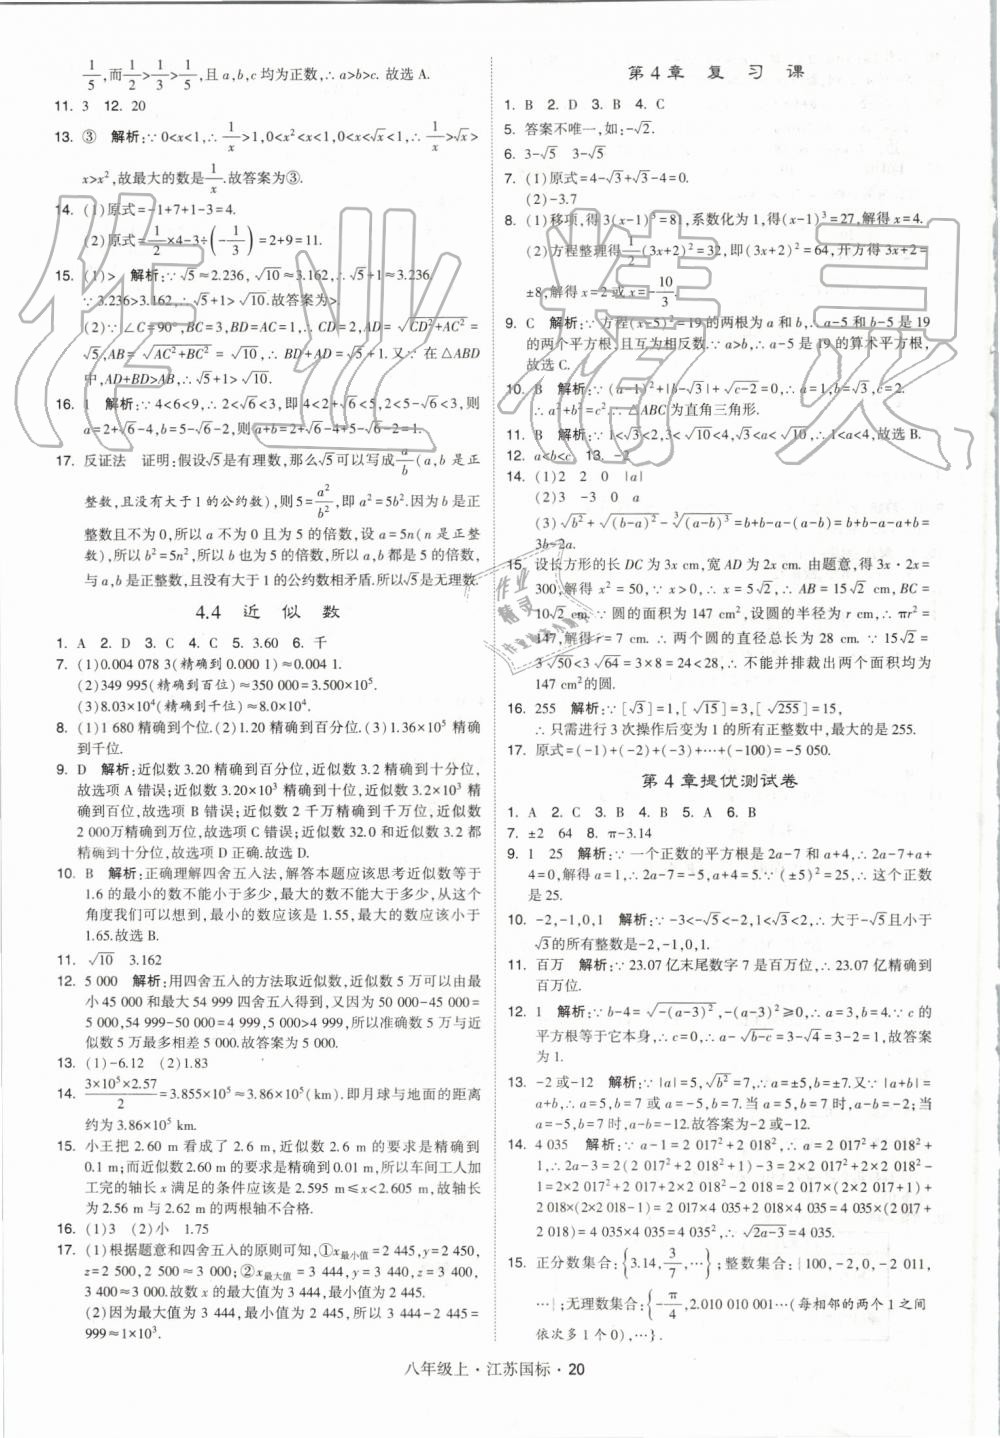 1/5,而1/2>1/3>1/5,且 a,b,c 均为正数,∴a>b>c. 故选 A.
11. 3  12. 20
13. ③  解析:∵0<x<1,∴1/x>1,0<x²<x<1,0<x<√x<1,∴1/x>√x>
x>x²,故最大的数是1/x.故答案为③.
14. (1)原式=-1+7+1-3=4.
(2)原式=1/2×4-3÷(-1/3)=2+9=11.
15. (1)>  解析:∵√5≈2.236,√10≈3.162,∴√5+1≈3.236.
∵3.236>3.162,∴√5+1>√10.故答案为>.
(2)∵∠C=90°,BC=3,BD=AC=1,∴CD=2,AD=√(CD²+AC²)=
√5,AB=√(AC²+BC²)=√10,∴BD+AD=√5+1.又∵在△ABD
中,AD+BD>AB,∴√5+1>√10.
16. 1  解析:∵4<6<9,∴2<√6<3,即4<2+√6<5,2<5-√6<3,则
a=2+√6-4,b=5-√6-2,则a+b=2+√6-4+5-√6-2=1.
17. 反证法  证明:假设√5是有理数,那么√5可以写成a/b(a,b 是正
整数,且没有大于1的公约数),则5=a²/b²,即a²=5b².因为b是正
整数且不为0,所以a不为0且为5的倍数,设a=5n(n是正整
数),所以b²=5n²,所以b也为5的倍数,
与a,b是正整数,且没有大于1的公约数矛盾.所以√5是无理数.
4.4 近 似 数
1. A  2. D  3. C  4. C  5. 3.60  6. 千
7. (1)0.004 078 3(精确到0.000 1)≈0.004 1.
(2)349 995(精确到百位)≈350 000=3.500×10⁵.
(3)8.03×10⁴(精确到千位)≈8.0×10⁴.
8. (1)1 680精确到个位.(2)1.20精确到百分位.(3)1.36×10⁵精确
到千位.
9. D  解析:近似数3.20精确到百分位,近似数3.2精确到十分位,
故选项A错误;近似数3.20×10³精确到十位,近似数3.2×10³精
确到百位,故选项B错误;近似数2千万精确到千万位,近似数
2 000万精确到万位,故选项C错误;近似数32.0和近似数3.2都
精确到十分位,故选D.
10. B  解析:正确理解四舍五入法,解答本题应该思考近似数等于
1.6的最小的数不能小于多少,最大的数不能大于多少,从这个
角度我们可以想到,最小的数应该是1.55,最大的数应该小于
1.65.故选B.
11. √10  3.162
12. 5 000  解析:用四舍五入的方法取近似数,近似数5万可以由最
小45 000和最大54 999四舍五入得到,又因为50 000-45 000=
5 000,54 999-50 000=4 999,5 000>4 999,所以准确数5万与近
似数5万最多相差5 000.故答案为5 000.
13. (1)-6.12  (2)1.83
14. 3×10⁵×2.57/2=3.855×10⁵≈3.86×10⁵(km).即月球与地面的距离
约为3.86×10⁵ km.
15. 小王把2.60 m看成了2.6 m,近似数2.6 m的要求是精确到
0.1 m;而近似数2.60 m的要求是精确到0.01 m,所以车间工人加
工完的轴长x满足的条件应该是2.595 m≤x<2.605 m,故轴长
为2.56 m与2.62 m的两根轴不合格.
16. (1)3  (2)小  1.75
17. (1)根据题意和四舍五入的原则可知,①x最小值=2 445,y=2 450,
z=2 500,2 500≈3 000;②x最大值=3 444,y=3 440,z=3 400,
3 400≈3 000.故数x的最大值为3 444,最小值为2 445.
(2)因为最大值为3 444,最小值为2 445,所以3 444-2 445=
999≈1×10³.
第4章 复 习 课
1. B  2. D  3. B  4. C
5. 答案不唯一,如:-√2.
6. 3-√5  3-√5
7. (1)原式=4-√3+√3-4=0.
(2)-3.7
8. (1)移项,得3(x-1)³=81,系数化为1,得(x-1)³=27,解得x=4.
(2)方程整理得1/2(3x+2)²=32,即(3x+2)²=64,开方得3x+2=
±8,解得x=2或x=-10/3.
9. C  解析:∵方程(x-5)²=19的两根为a和b,∴a-5和b-5是19
的两个平方根,且互为相反数.∵a>b,∴a-5是19的算术平方根,
故选C.
10. B  解析:∵(a-1)²+|b-√3|+√(c-2)=0,∴a=1,b=√3,c=2.
∴a²+b²=c².∴△ABC为直角三角形.
11. B  解析:∵1<√3<2,3<√10<4,√3<a<√10,∴1<a<4,故选B.
12. a<b<c  13. -2
14. (1)2  2  0  |a|
(2)3  -3  0  a
(3)√b²+√(b-a)²-∛(a-b)³=b+b-a-(a-b)=b+b-a-a+b=
3b-2a.
15. 设长方形的长DC为3x cm,宽AD为2x cm.由题意,得3x·2x=
300,解得x²=50,∵x>0,∴x=5√2,∴AB=15√2 cm,BC=
10√2 cm.∵圆的面积为147 cm²,设圆的半径为r cm,∴πr²=
147,解得r=7 cm.∴两个圆的直径总长为28 cm.∵15√2=
3√50<3√64=3×8=24<28,∴不能并排裁出两个面积均为
147 cm²的圆.
16. 255  解析:∵[√3]=1,[√15]=3,[√255]=15,
∴只需进行3次操作后变为1的所有正整数中,最大的是255.
17. 原式=(-1)+(-2)+(-3)+…+(-100)=-5 050.
第4章提优测试卷
1. A  2. C  3. B  4. B  5. A  6. B
7. ±2  64  8. π-3.14
9. 1  25  解析:∵一个正数的平方根是2a-7和a+4,∴2a-7+a+
4=0.解得a=1,∴2a-7=-5,a+4=5.∵(±5)²=25,∴这个正数
是25.
10. -2,-1,0,1  解析:∵-3<-√5<-2,1<√3<2,∴大于-√5且小于
√3的所有整数是-2,-1,0,1.
11. 百万  解析:∵23.07亿末尾数字7是百万位,∴23.07亿精确到
百万位.
12. 1  解析:∵b-4=√(-(a-3)²),-(a-3)²≥0,∴a=3,b=4.∵c的
平方根等于它本身,∴c=0,∴a-√(b-c)=3-√4=3-2=1,故答案
为1.
13. -2或-12  解析:∵|a|=5,√b²=7,∴a=±5,b=±7.又∵|a+b|=
a+b,∴a=5,b=7或a=-5,b=7,当a=5,b=7时,a-b=-2;当
a=-5,b=7时,a-b=-12.故答案为-2或-12.
14. 4 035  解析:∵a-1=2 017²+2 018²,∴a=2 017²+2 018²+1,
∴2a-3=2(2 017²+2 018²+1)-3=2×2 017²+2×2 018²-1=
2×2 017²+(2×2 018²-1)=2×2 017²+(2×2 017+1)+
2 018×(2×2 018-1)=2 017×4 035+2 018+2 018×(2×2 017+
2 018)=4 035×4 035=4 035²,∴√(2a-3)=4 035.
15. 正分数集合:{3.14,3/7,…};整数集合:{100,-2,0,-2 011,
…};无理数集合:{-π/4,2.010 010 001…(每相邻的两个1之间
依次多1个0),…}.
八年级上·江苏国标·20
作业精灵